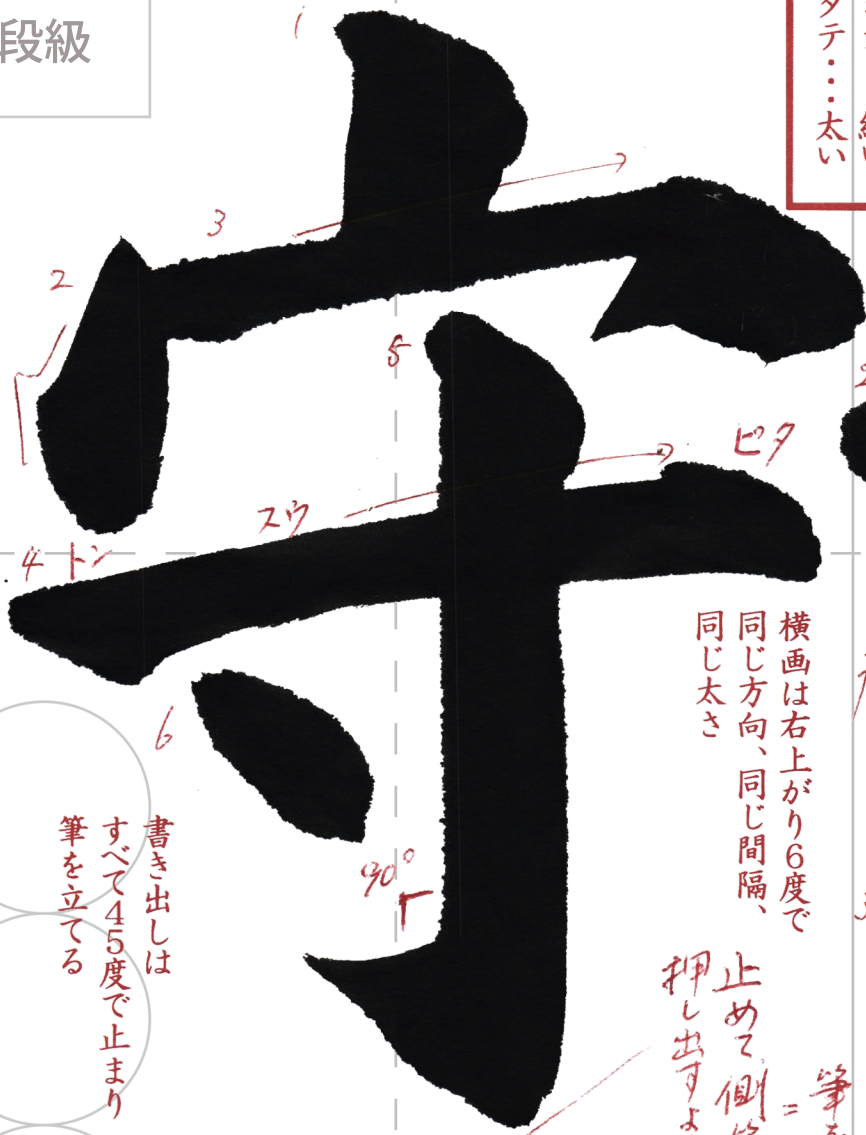 段級
タテ・・・太い
守
1
2
3
4
5
6
トン
スウ
ピタ
90°
横画は右上がり6度で
同じ方向、同じ間隔、
同じ太さ
書き出しは
すべて45度で止まり
筆を立てる
止めて側
押し出すよ
筆を
=
3